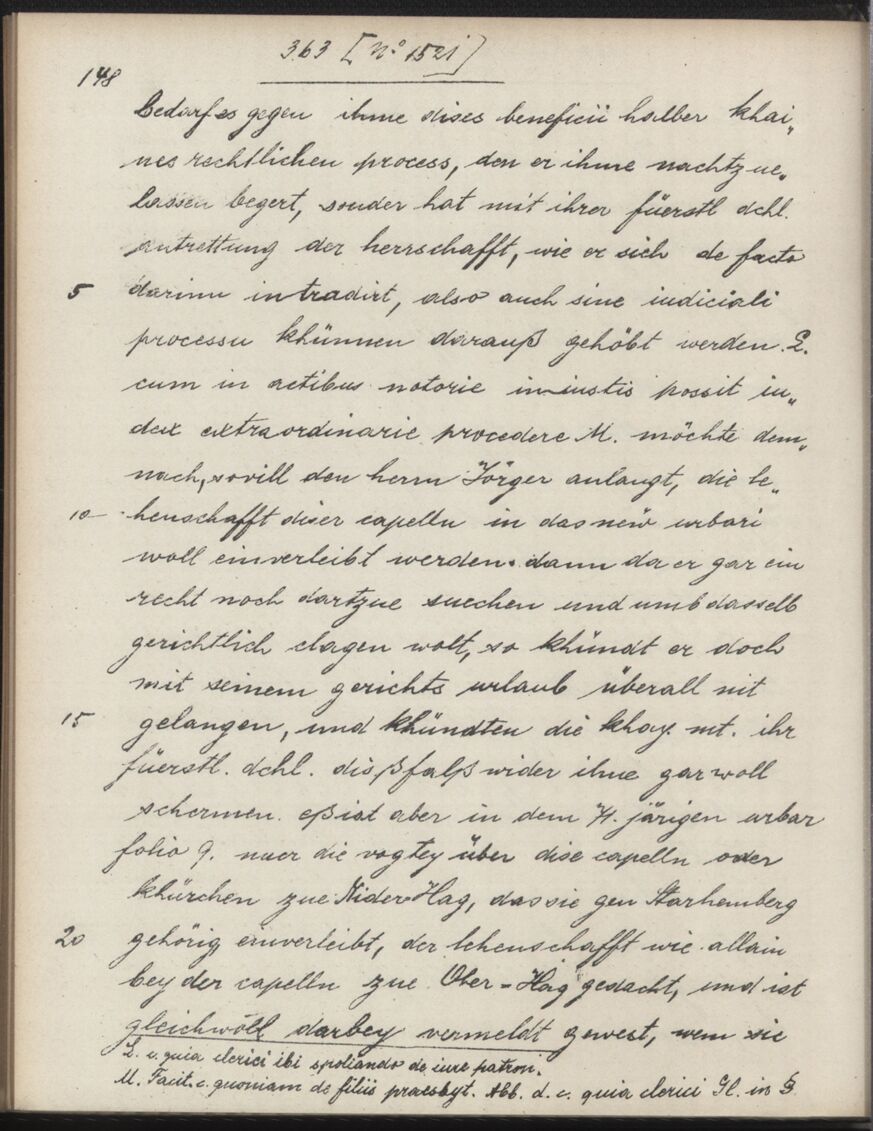 363 [No 1521]
148
bedarf es gegen ihme dises beneficii halber khai„
nes rechtlichen process, den er ihme nachtzue„
lassen begert, sonder hat mit ihrer füerstl dchl.
antrettung der herrschafft, wie er sich de facto
5 darinn intradirt, also auch sine iudiciali
processu khünnen darauß gehöbt werden. L.
cum in actibus notorie iniustis possit iu„
dex extraordinarie procedere M. möchte dem„
nach, sovill den herrn Jörger anlangt, die le„
10 henschafft diser capelln in das new urbari
woll einverleibt werden. dann da er gar ein
recht noch dartzue suechen und umb dasselb
gerichtlich clagen wolt, so khündt er doch
mit seinem gerichts urlaub überall nit
15 gelangen, und khündten die khay. mt. ihr
füerstl. dchl. dißfalß wider ihne gar woll
schermen. eß ist aber in dem 71. järigen urbar
folio 9. nuer die vogtey über dise capelln oder
khürchen zue Nider-Hag, das sie gen Starhemberg
20 gehörig einverleibt, der lehenschafft wie allain
bey der capelln zue Ober-Hag gedacht, und ist
gleichwöll darbey vermeldt gewest, wem sie
L. c. quia clerici ibi spoliando de iure patron.
M. Facit. c. quoniam de filiis praesbyt. Abb. d. c. quia clerici Gl. in §